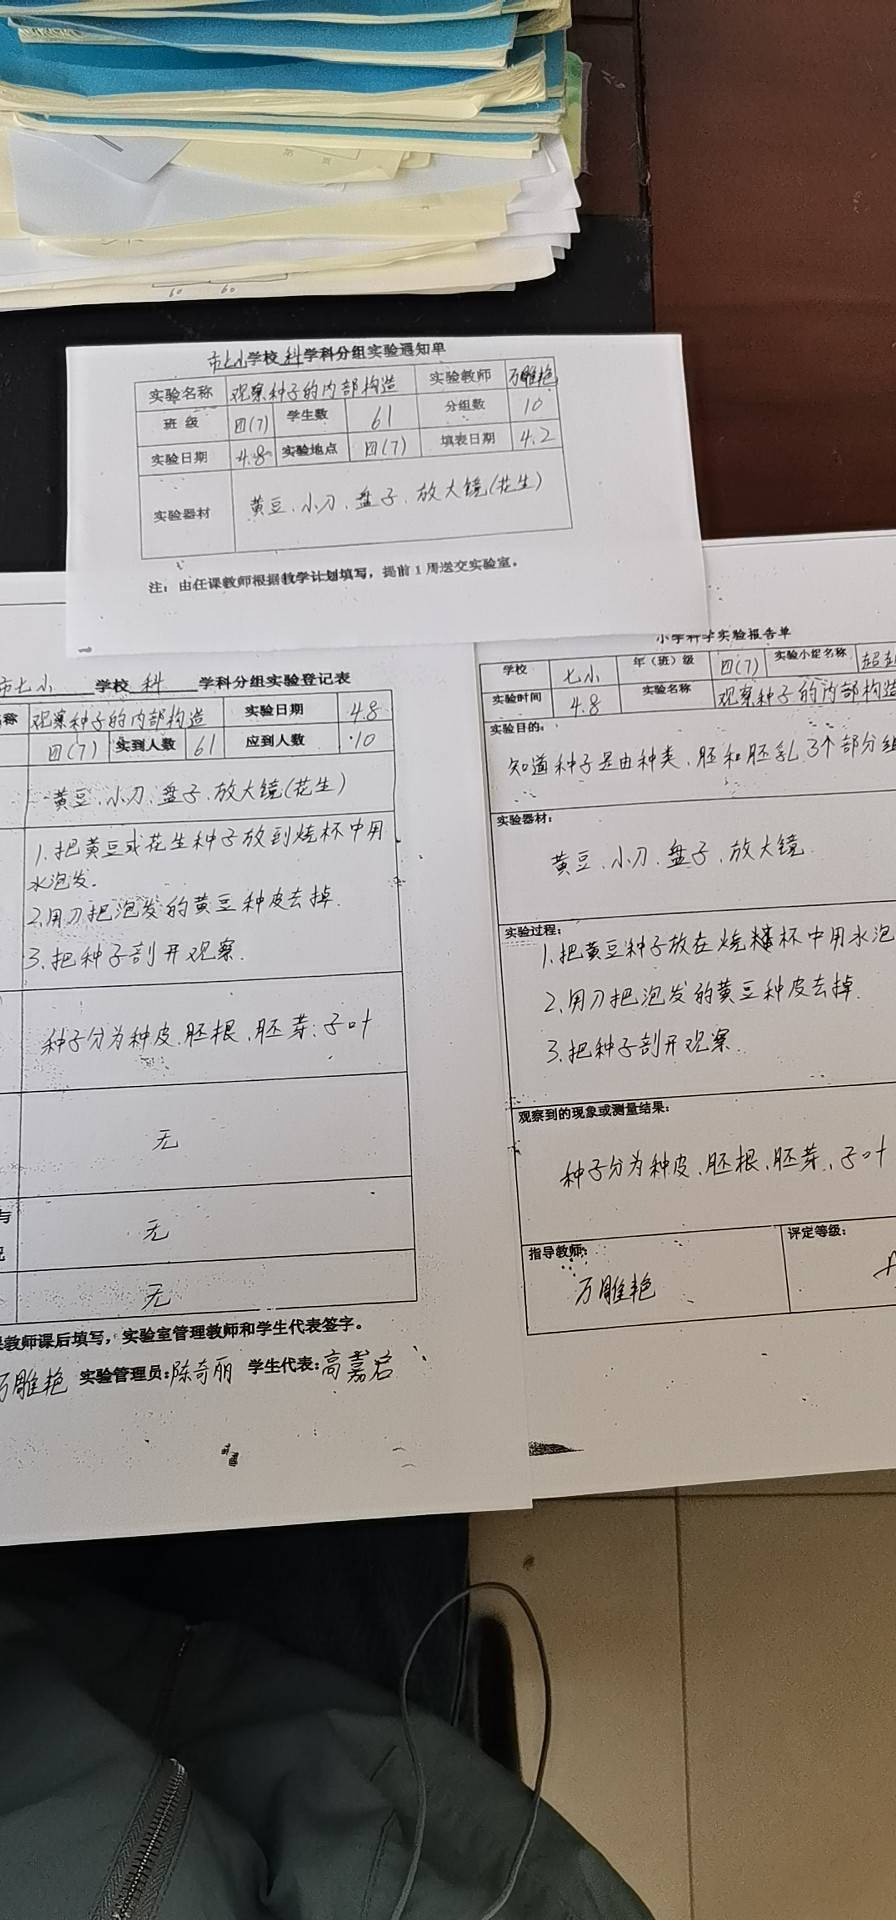 60 60
市七小学校 科学科分组实验通知单
实验名称 观察种子的内部构造 实验教师 万雕艳
班 级 四(7) 学生数 61 分组数 10
实验日期 4.8 实验地点 四(7) 填表日期 4.2
实验器材 黄豆、小刀、盘子、放大镜(花生)
注：由任课教师根据教学计划填写，提前1周送交实验室。
市七小 学校 科 学科分组实验登记表
称 观察种子的内部构造 实验日期 4.8
四(7) 实到人数 61 应到人数 10
黄豆、小刀、盘子、放大镜(花生)
1.把黄豆或花生种子放到烧杯中用
水泡发.
2.用刀把泡发的黄豆种皮去掉.
3.把种子剖开观察.
种子分为种皮、胚根、胚芽、子叶
无
与 无
无
教师课后填写，实验室管理教师和学生代表签字。
万雕艳 实验管理员：陈奇丽 学生代表：高嘉启
小学科学实验报告单
学校 七小 年（班）级 四(7) 实验小组名称
实验时间 4.8 实验名称 观察种子的内部构造
实验目的：
知道种子是由种类、胚和胚乳3个部分组
实验器材：
黄豆、小刀、盘子、放大镜
实验过程：
1.把黄豆种子放在烧杯中用水泡
2.用刀把泡发的黄豆种皮去掉.
3.把种子剖开观察.
观察到的现象或测量结果：
种子分为种皮、胚根、胚芽、子叶
指导教师： 评定等级：
万雕艳